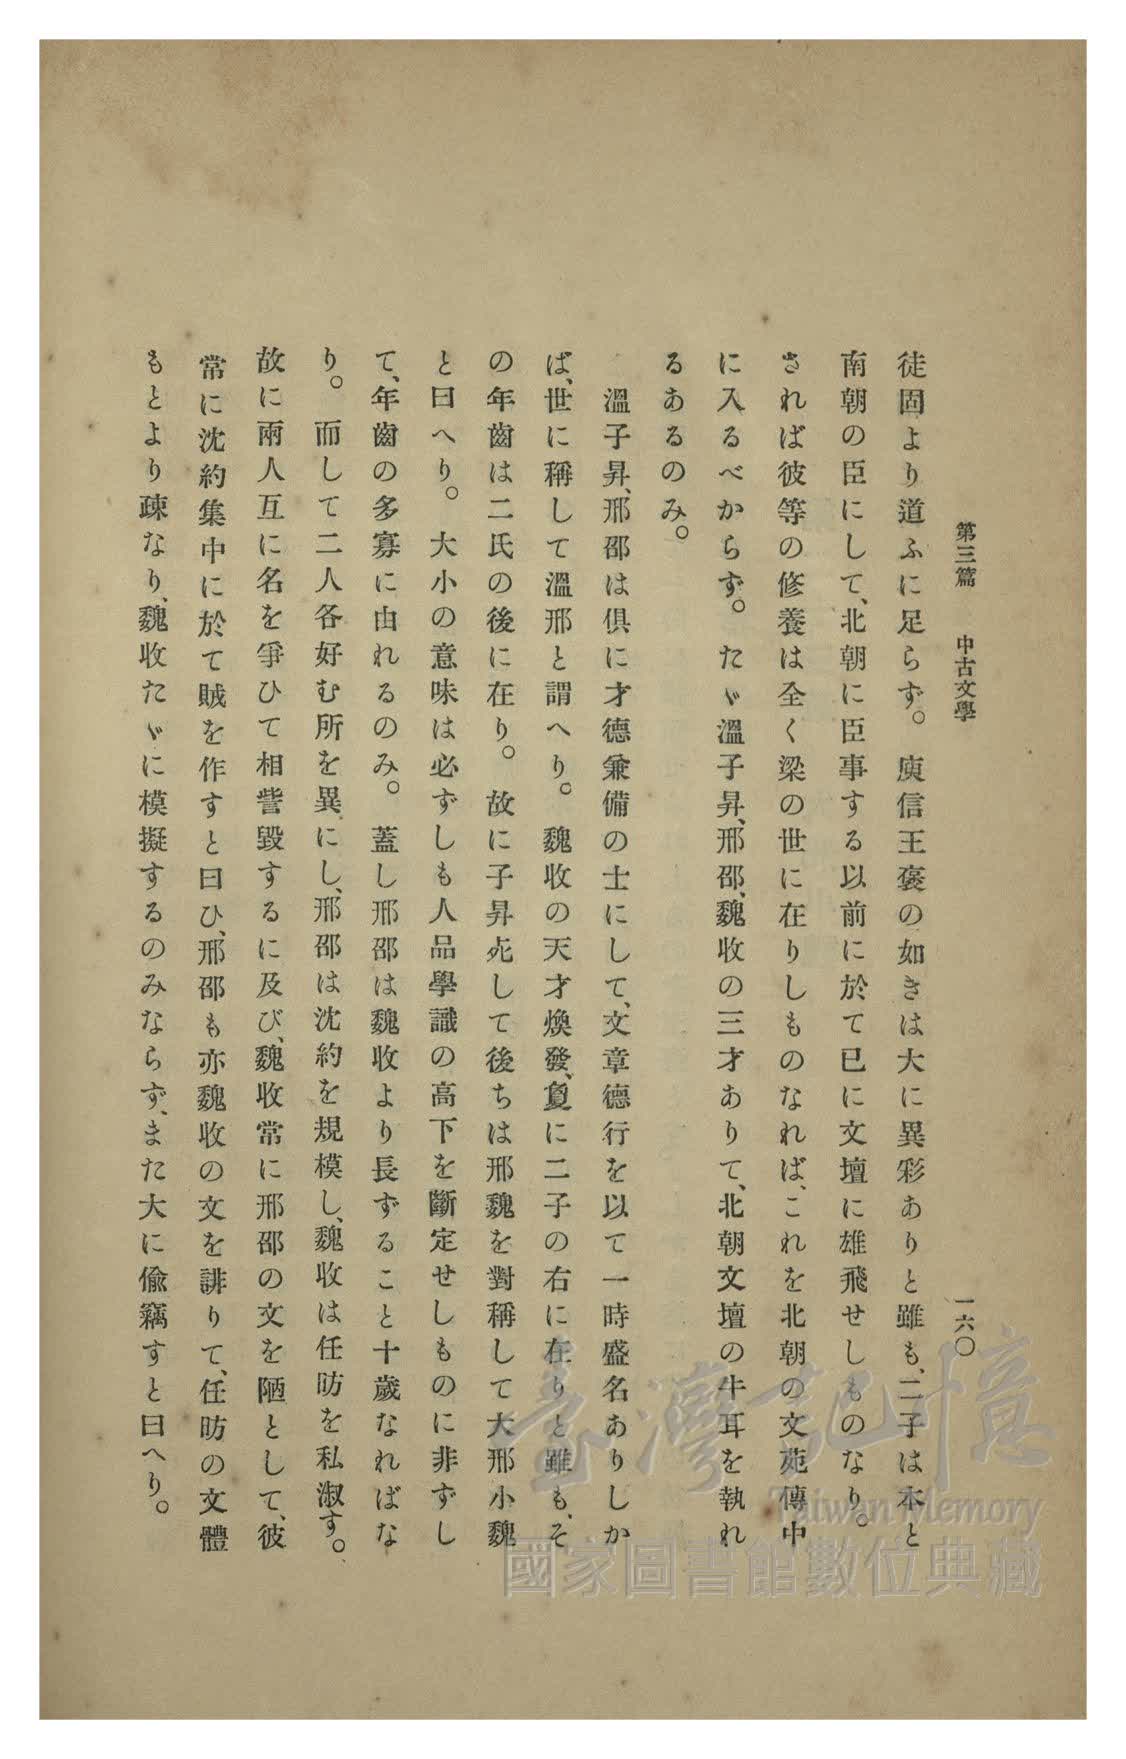 第三篇　中古文學　一六〇
徒固より道ふに足らず。庾信王褒の如きは大に異彩ありと雖も、二子は本と
南朝の臣にして、北朝に臣事する以前に於て已に文壇に雄飛せしものなり。
されば彼等の修養は全く梁の世に在りしものなれば、これを北朝の文苑傳中
に入るべからず。たゞ溫子昇、邢邵、魏收の三才ありて、北朝文壇の牛耳を執れ
るあるのみ。
溫子昇、邢邵は倶に才德兼備の士にして、文章德行を以て一時盛名ありしか
ば、世に稱して溫邢と謂へり。魏收の天才煥發、夐に二子の右に在りと雖も、そ
の年齒は二氏の後に在り。故に子昇死して後ちは邢魏を對稱して大邢小魏
と曰へり。大小の意味は必ずしも人品學識の高下を斷定せしものに非ずし
て、年齒の多寡に由れるのみ。蓋し邢邵は魏收より長ずること十歲なればな
り。而して二人各好む所を異にし、邢邵は沈約を規模し、魏收は任昉を私淑す。
故に兩人互に名を爭ひて相訾毀するに及び、魏收常に邢邵の文を陋として、彼
常に沈約集中に於て賊を作すと曰ひ、邢邵も亦魏收の文を誹りて、任昉の文體
もとより疎なり、魏收たゞに模擬するのみならず、また大に偸竊すと曰へり。
臺灣記憶
Taiwan Memory
國家圖書館數位典藏